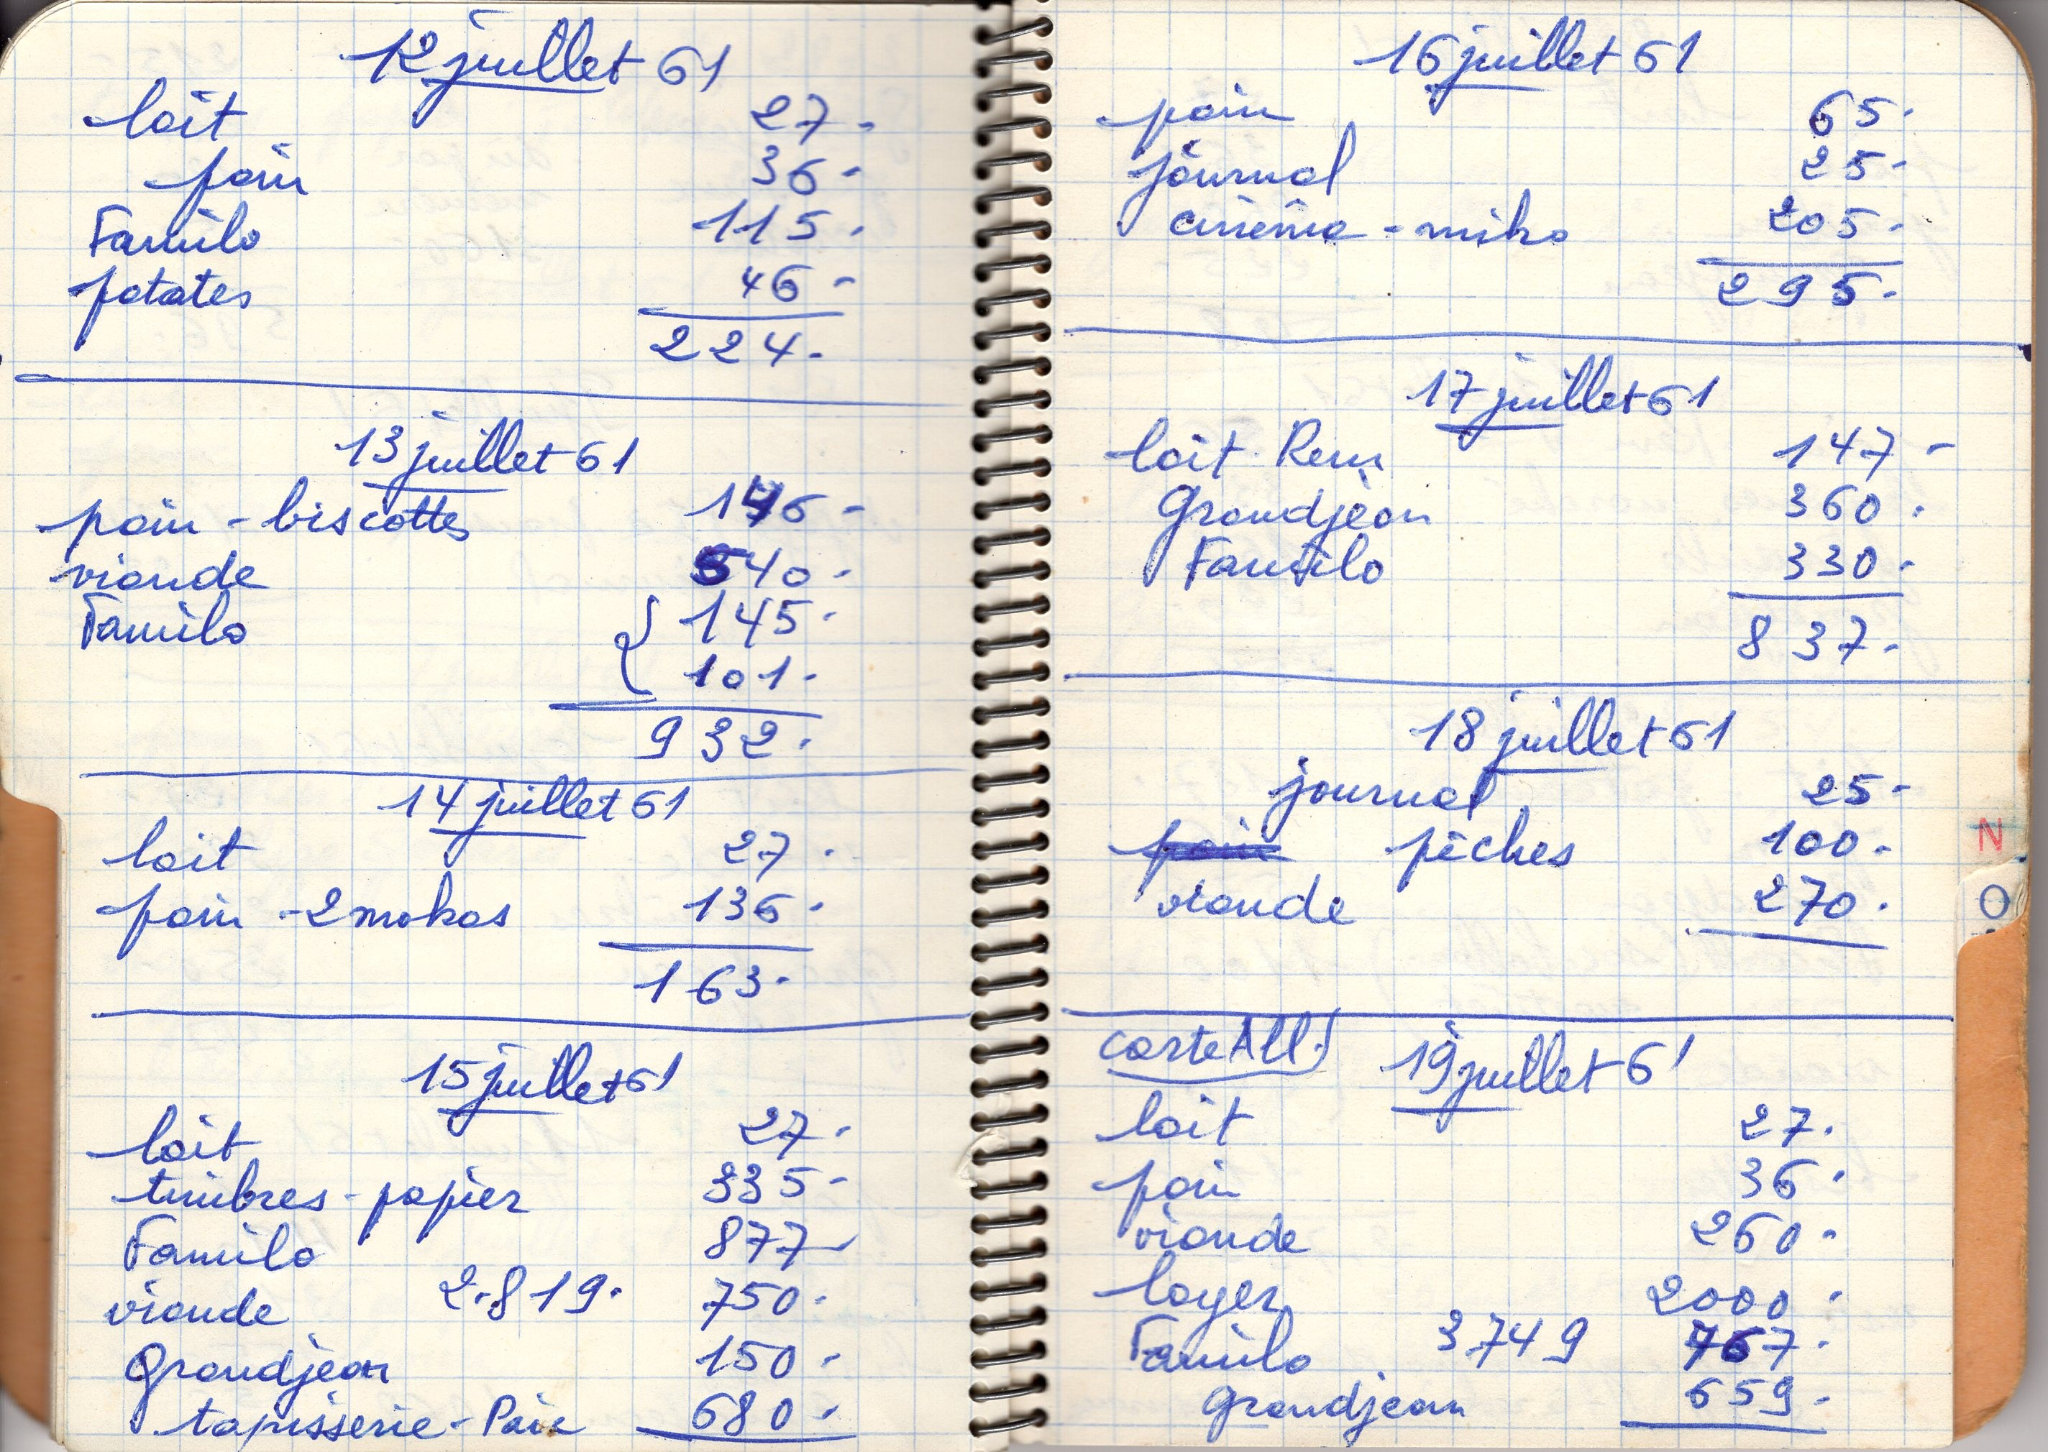 12 juillet 61
lait 27.
pain 36.
Familo 115.
patates 46.
224.
13 juillet 61
pain - biscottes 146.
viande 540.
Familo { 145.
101.
932.
14 juillet 61
lait 27.
pain - 2 mokas 136.
163.
15 juillet 61
lait 27.
timbres - papier 335.
Familo 877
viande 2.819. 750.
Grandjean 150.
tapisserie - Paix 680.
16 juillet 61
pain 65.
journal 25.
cinéma - miko 205.
295.
17 juillet 61
lait 147
Grandjean 360.
Familo 330.
837.
18 juillet 61
journal 25.
pêches 100.
viande 270.
carte All. 19 juillet 61
lait 27.
pain 36.
viande 260.
loyer 2000.
Familo 3749 767.
Grandjean 659.
N
O